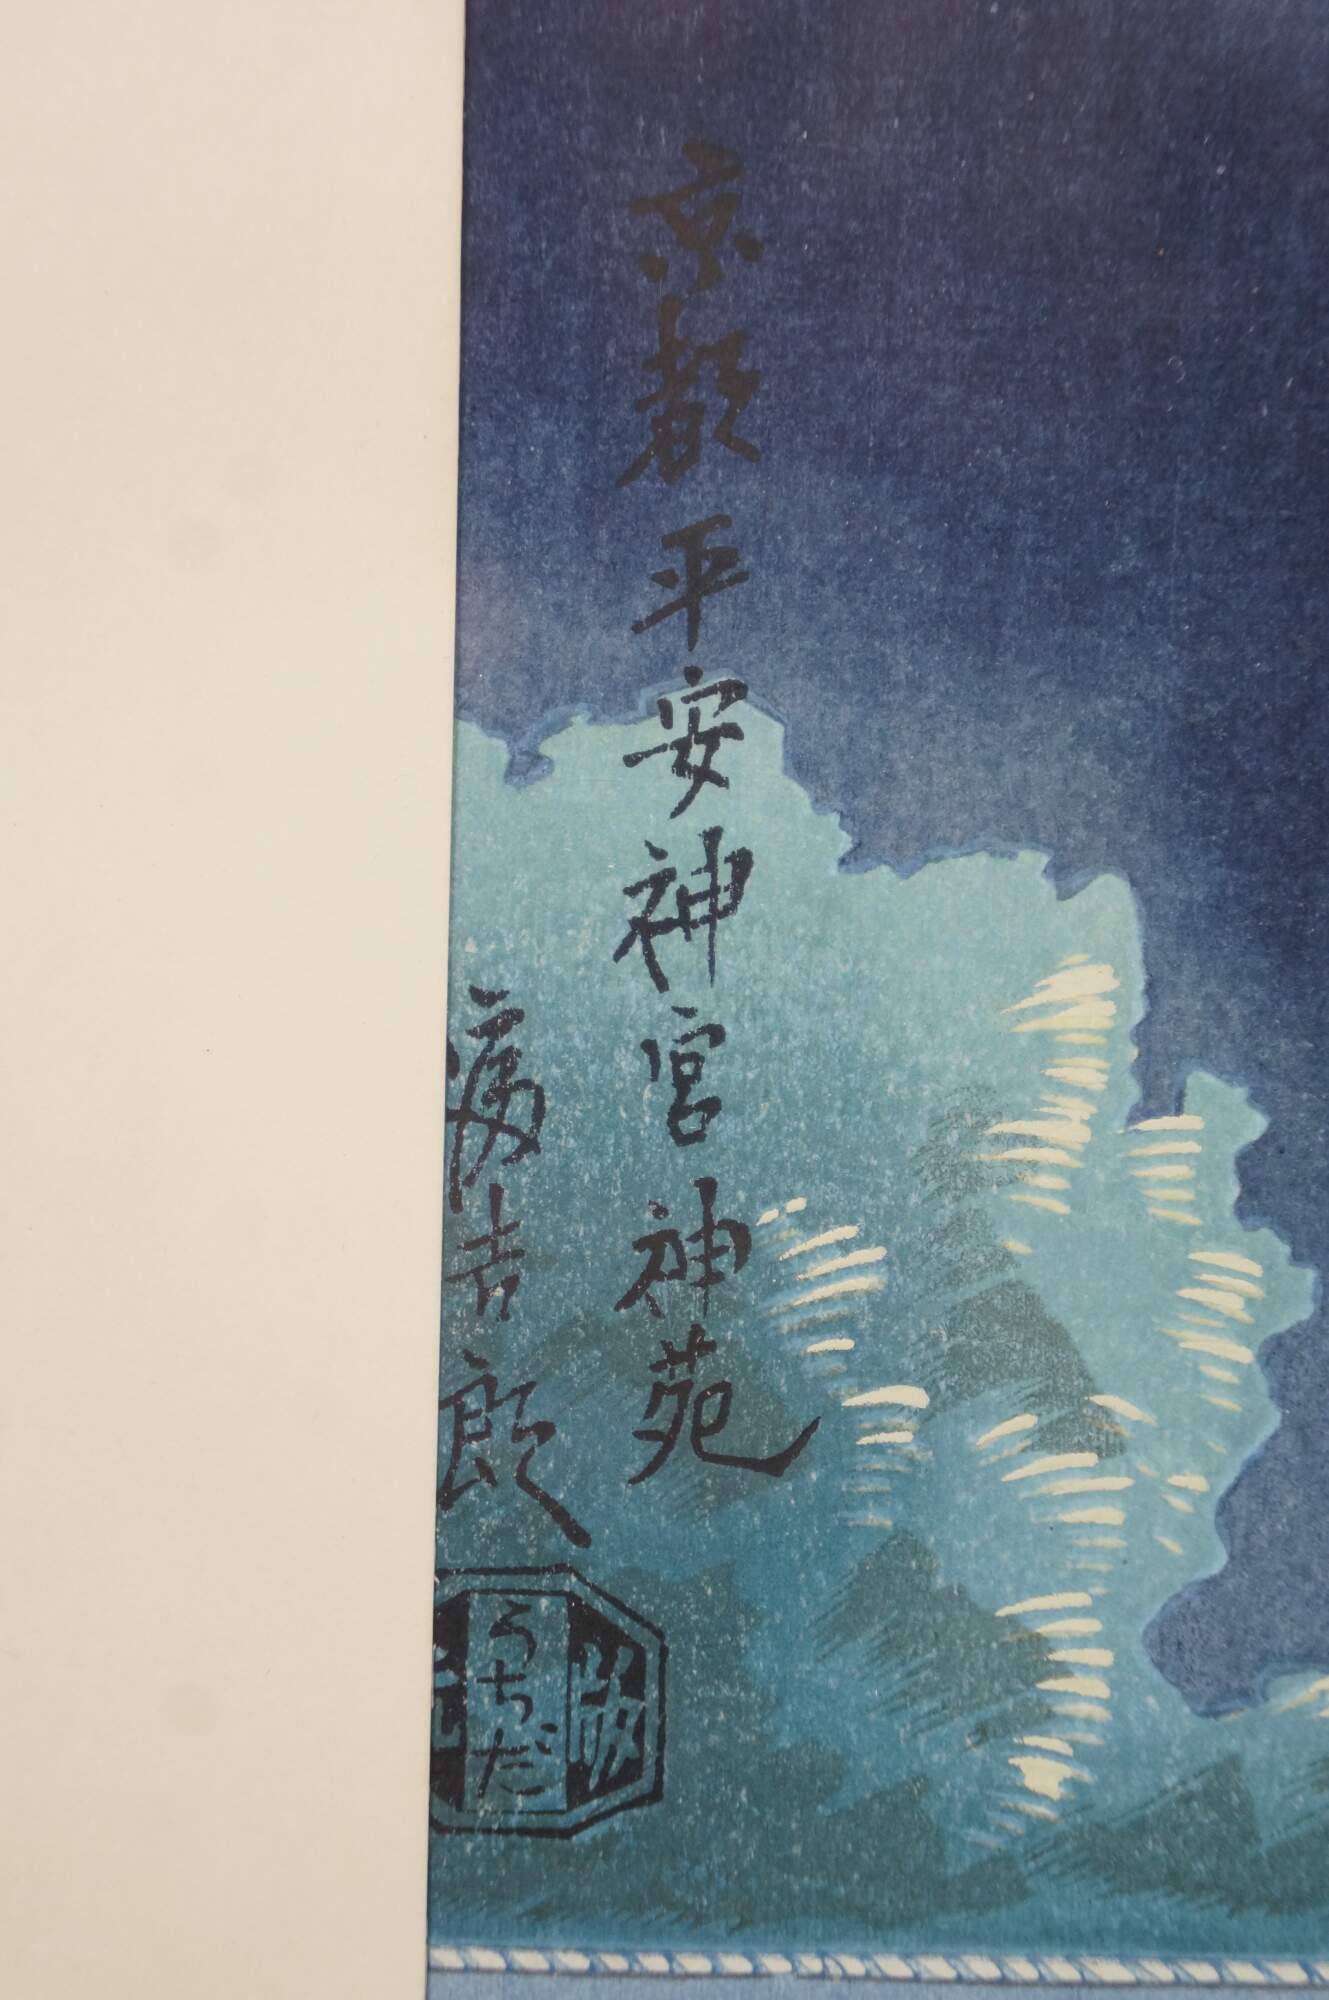 京都平安神宮神苑
富吉郎
うちだ